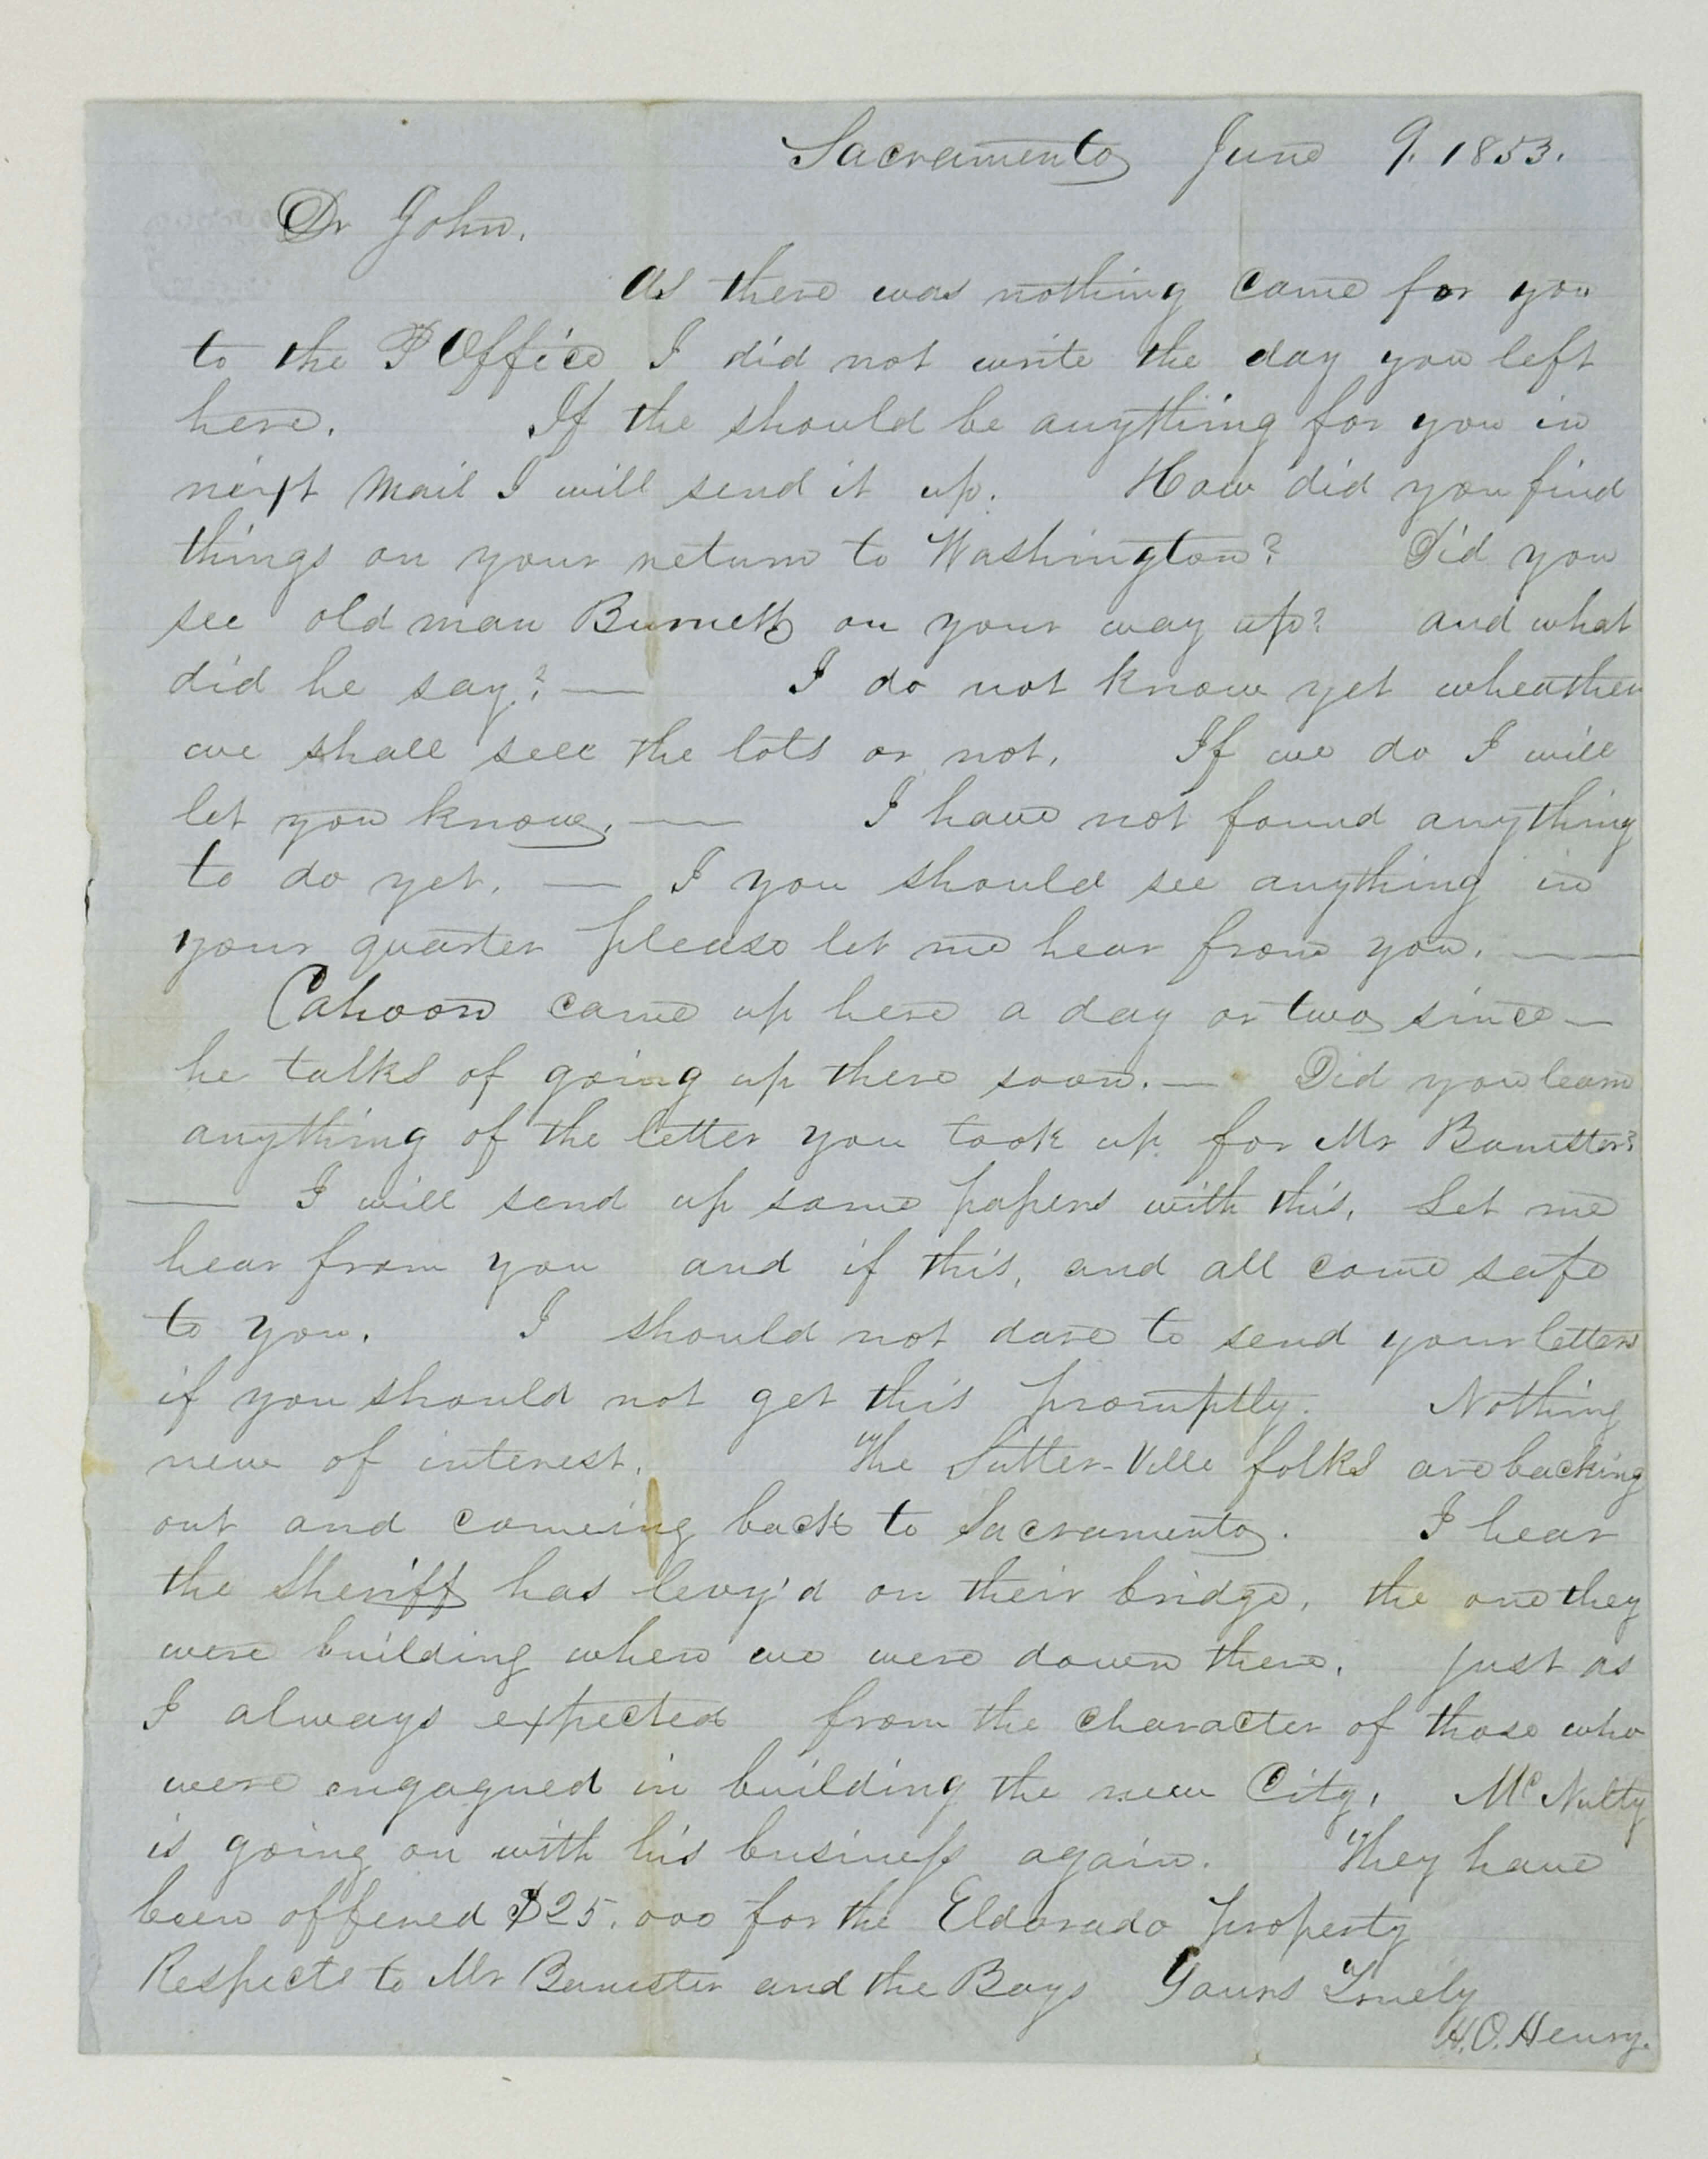 Sacramento June 9. 1853.
Dr John.
As there was nothing came for you
to the P Office I did not write the day you left
here. If the should be anything for you in
next Mail I will send it up. How did you find
things on your return to Washington? Did you
see old man Burnett on your way up? and what
did he say? — I do not know yet wheather
we shall sell the lots or not. If we do I will
let you know. — I have not found anything
to do yet. — I you should see anything in
your quarter please let me hear from you. —
Cahoon came up here a day or two since —
he talks of going up there soon. — Did you learn
anything of the letter you took up for Mr Banister?
— I will send up some papers with this. Let me
hear from you and if this, and all come safe
to you. I should not dare to send your letters
if you should not get this promptly. Nothing
new of interest. The Sutter-Ville folks are backing
out and comeing back to Sacramento. I hear
the Sheriff has levy'd on their bridge, the one they
were building when we were down there. just as
I always expected from the character of those who
were engagued in building the new City. McNulty
is going on with his business again. They have
been offered $25.000 for the Eldorado property
Respects to Mr Banister and the Boys Yours Truely
H. O. Henry.